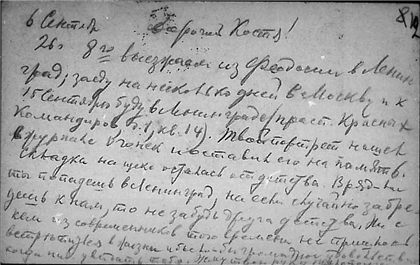 6 Сентяб Дорогой Костя! 8/2
26 г 8го выезжаем из Феодосии в Ленин
град; заеду на несколько дней в Москву и к
15 сентября буду в Ленинграде (прасп. Красных
Командиров, д. 1, кв. 14). Твой портрет нашел
в журнале Огонек и оставил его на память.
складка на щеке осталась от детства. Вряд ли
ты попадешь в Ленинград, но если случайно забре
дешь к нам, то не забудь друга детства. Ни с
кем из современников того времени не пришлось
встретиться в жизни и было бы громадное удовольствие
когда